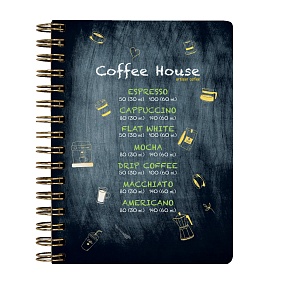 Coffee House
artisan coffee
ESPRESSO
50 (30 ml) 100 (60 ml)
CAPPUCCINO
80 (30 ml) 140 (60 ml)
FLAT WHITE
80 (30 ml) 140 (60 ml)
MOCHA
80 (30 ml) 140 (60 ml)
DRIP COFFEE
50 (30 ml) 100 (60 ml)
MACCHIATO
80 (30 ml) 140 (60 ml)
AMERICANO
80 (30 ml) 140 (60 ml)